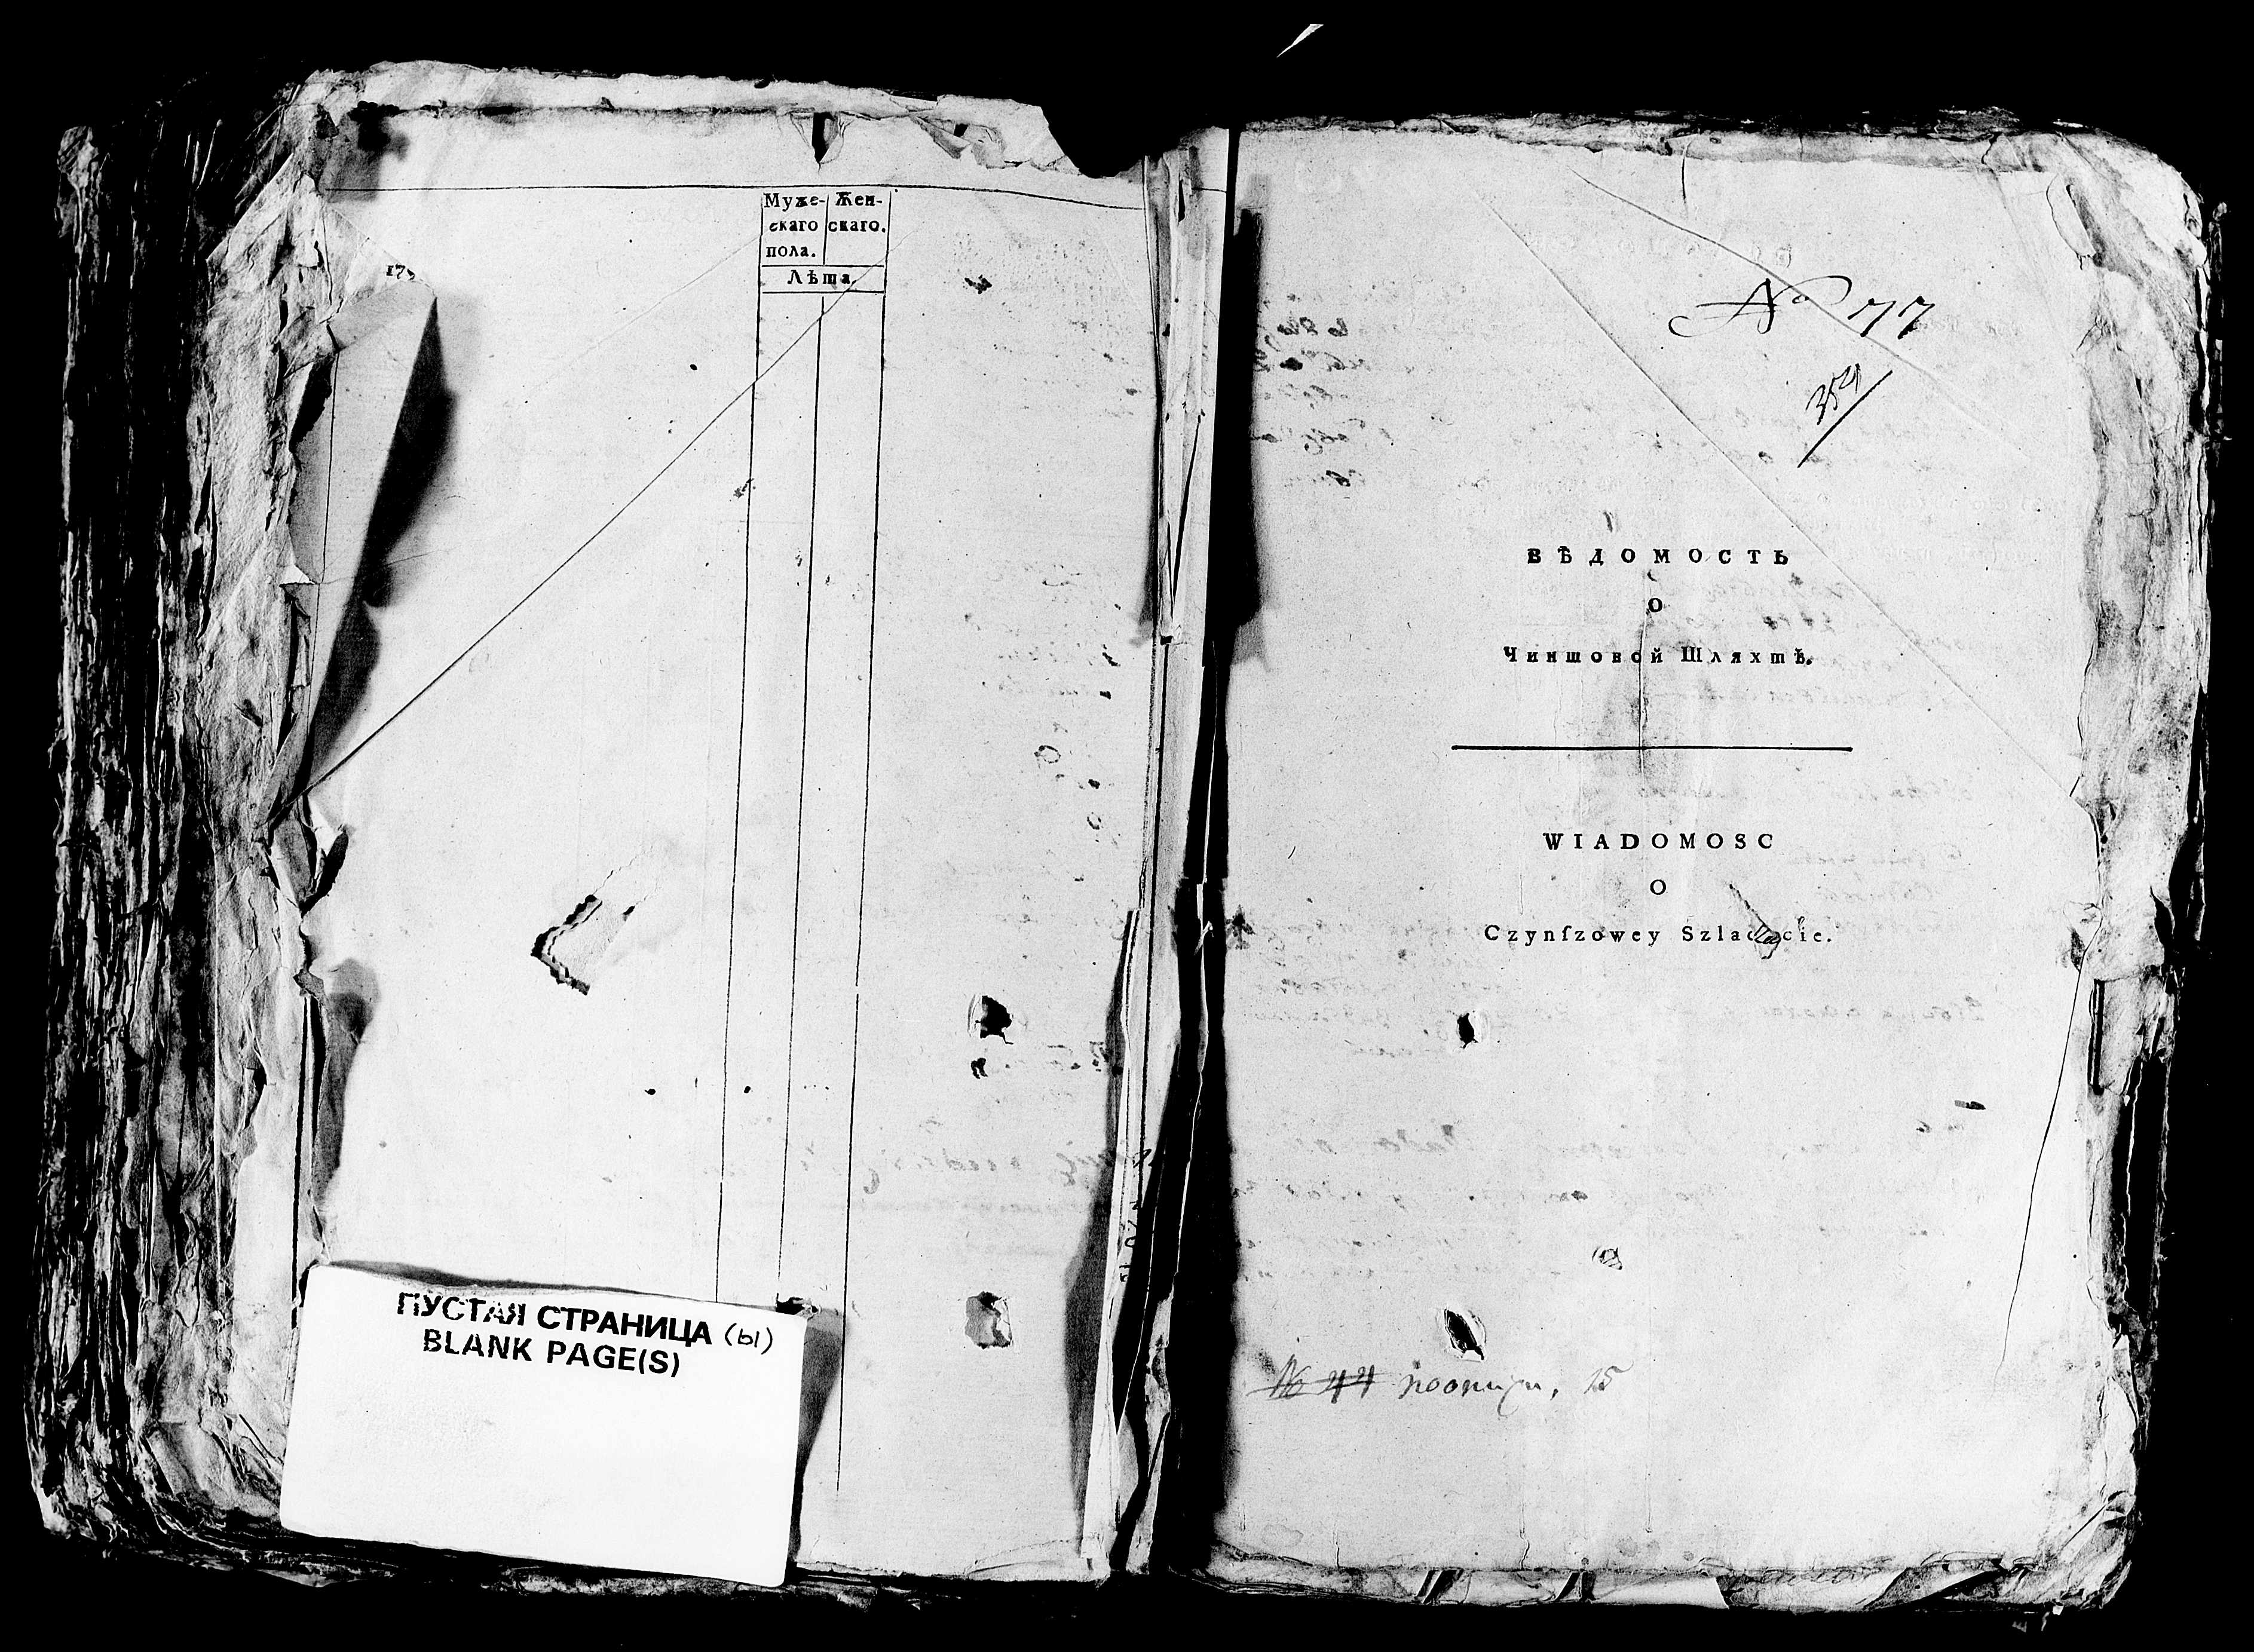 Муже-
скаго
пола.
Жен-
скаго.
Лѣта
179
ПУСТАЯ СТРАНИЦА (ы)
BLANK PAGE(S)
№ 77
354
ВѢДОМОСТЬ
О
Чиншовой Шляхтѣ.
WIADOMOSC
O
Czynſzowey Szlachcie.
№ 44 15